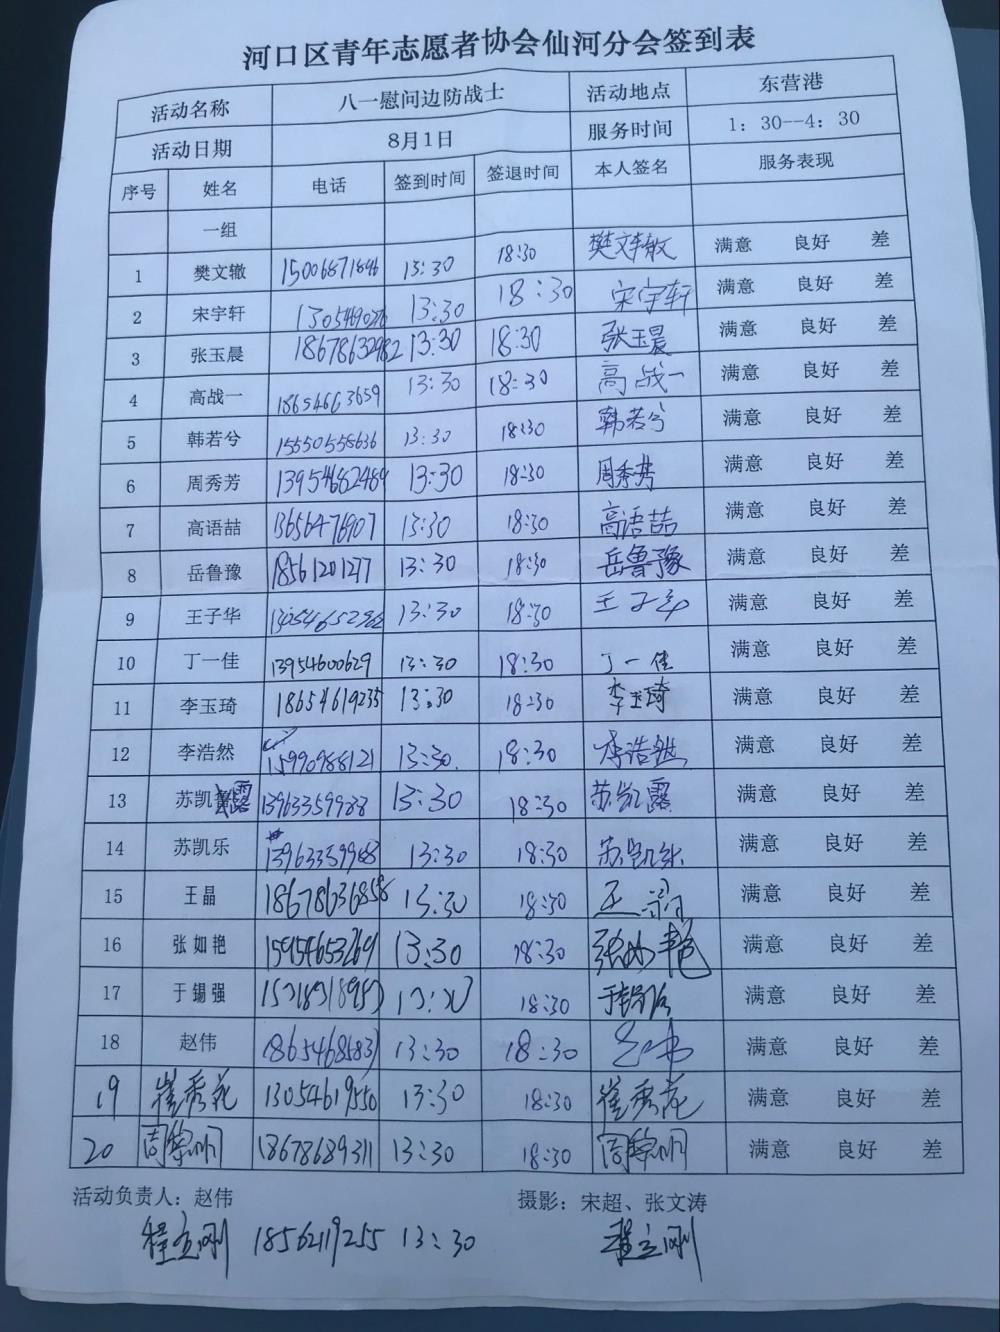 河口区青年志愿者协会仙河分会签到表
活动名称 八一慰问边防战士 活动地点 东营港
活动日期 8月1日 服务时间 1：30--4：30
序号 姓名 电话 签到时间 签退时间 本人签名 服务表现
一组
1 樊文辙 13:30 18:30 樊文辙 满意 良好 差
2 宋宇轩 13:30 18:30 宋宇轩 满意 良好 差
3 张玉晨 18678632982 13:30 18:30 张玉晨 满意 良好 差
4 高战一 18654663659 13:30 18:30 高战一 满意 良好 差
5 韩若兮 15550558636 13:30 18:30 韩若兮 满意 良好 差
6 周秀芳 13954682489 13:30 18:30 周秀芳 满意 良好 差
7 高语喆 13656476907 13:30 18:30 高语喆 满意 良好 差
8 岳鲁豫 18561201277 13:30 18:30 岳鲁豫 满意 良好 差
9 王子华 13:30 18:30 王子华 满意 良好 差
10 丁一佳 13954600629 13:30 18:30 丁一佳 满意 良好 差
11 李玉琦 18654619235 13:30 18:30 李玉琦 满意 良好 差
12 李浩然 15990988121 13:30 18:30 李浩然 满意 良好 差
13 苏凯露 13963359988 13:30 18:30 苏凯露 满意 良好 差
14 苏凯乐 13963359968 13:30 18:30 苏凯乐 满意 良好 差
15 王晶 18678636858 13:30 18:30 王晶 满意 良好 差
16 张如艳 15954653269 13:30 18:30 张如艳 满意 良好 差
17 于锡强 13:30 18:30 满意 良好 差
18 赵伟 18654685831 13:30 18:30 赵伟 满意 良好 差
19 崔秀花 13054619550 13:30 18:30 崔秀花 满意 良好 差
20 18678689311 13:30 18:30 满意 良好 差
活动负责人：赵伟 摄影：宋超、张文涛
程立刚 18562119255 13:30 程立刚